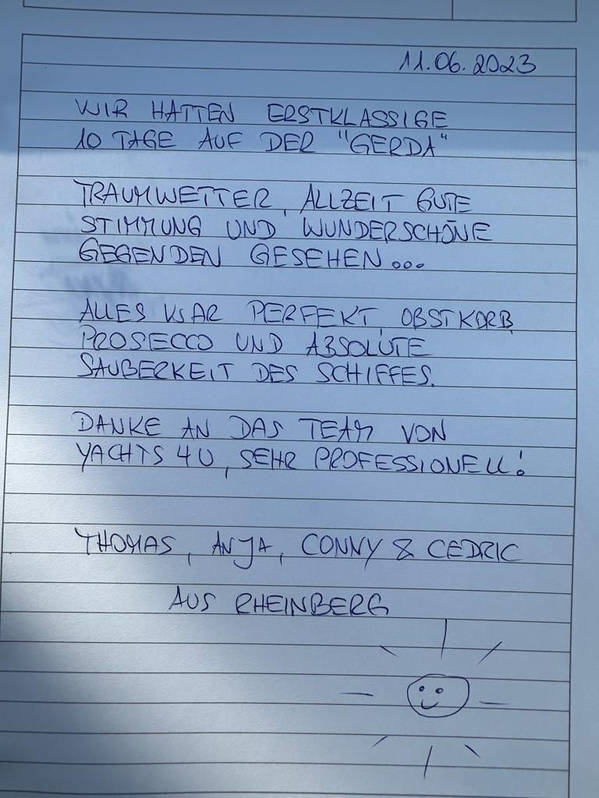 11.06.2023
WIR HATTEN ERSTKLASSIGE
10 TAGE AUF DER "GERDA"
TRAUMWETTER, ALLZEIT GUTE
STIMMUNG UND WUNDERSCHÖNE
GEGENDEN GESEHEN...
ALLES WAR PERFEKT, OBSTKORB,
PROSECCO UND ABSOLUTE
SAUBERKEIT DES SCHIFFES.
DANKE AN DAS TEAM VON
YACHTS 4U, SEHR PROFESSIONELL!
THOMAS, ANJA, CONNY & CEDRIC
AUS RHEINBERG